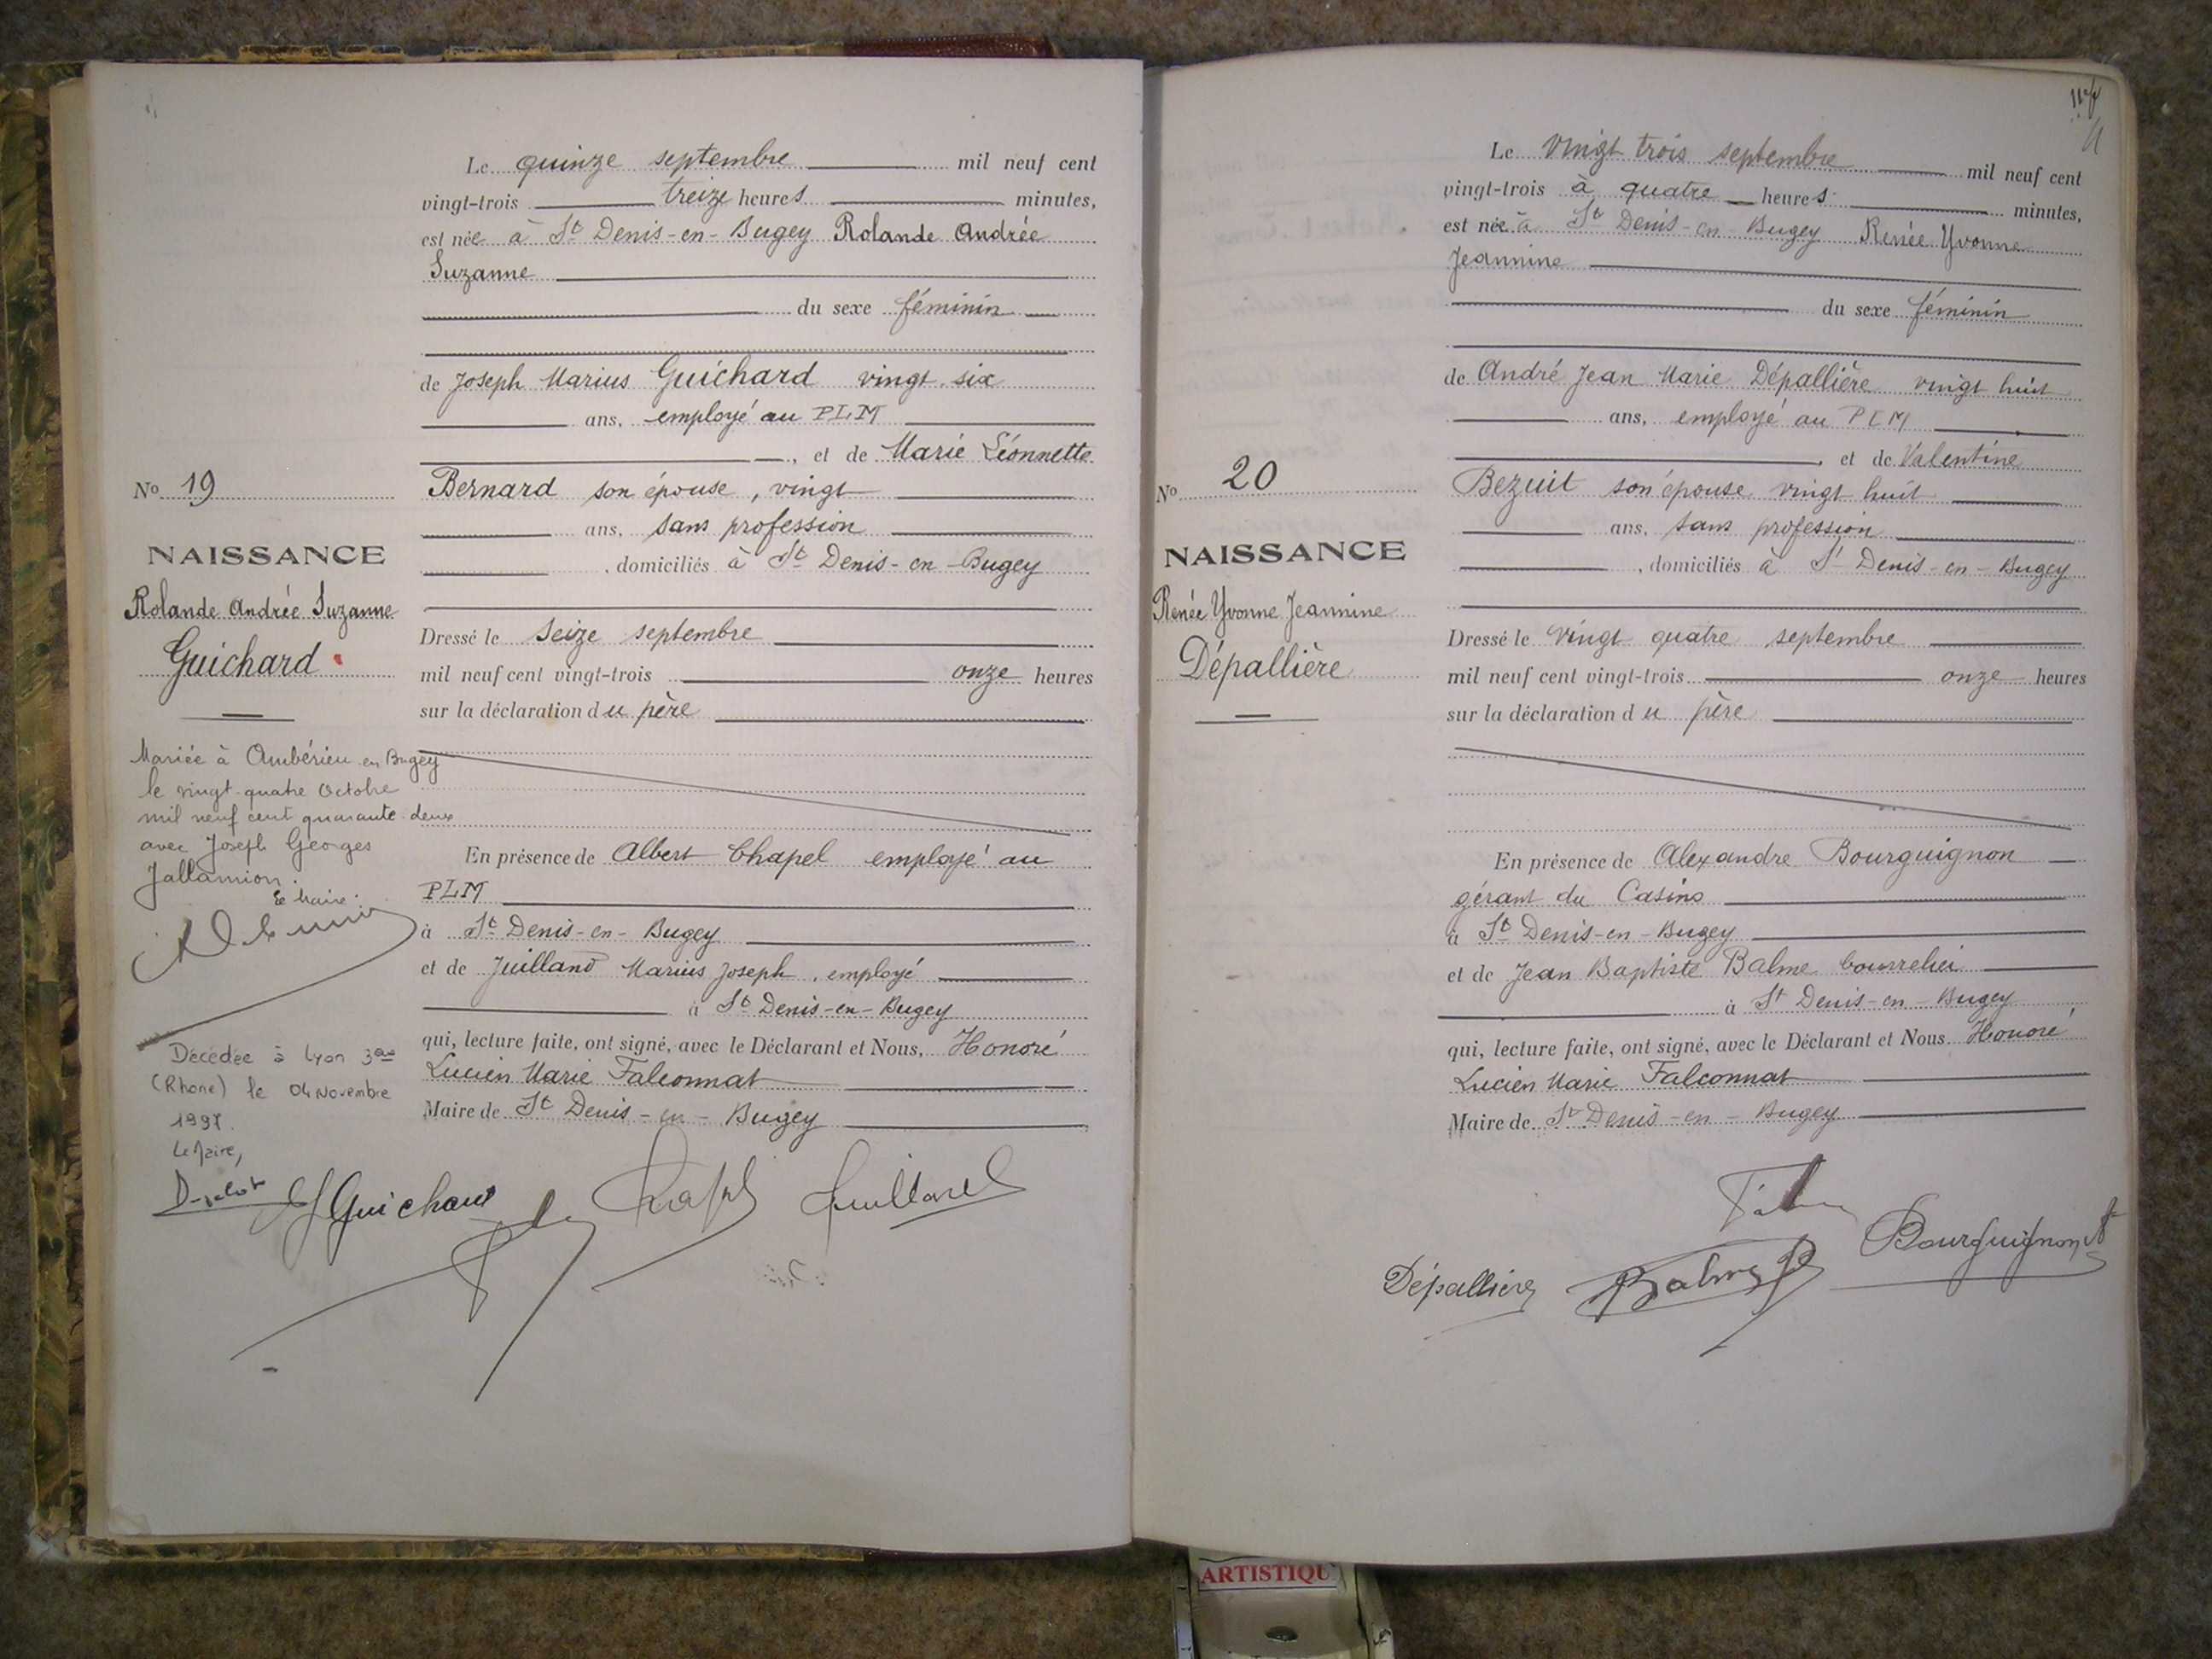 Le quinze septembre mil neuf cent
vingt-trois treize heures minutes,
est née à St Denis-en-Bugey Rolande Andrée
Suzanne
du sexe féminin
de Joseph Marius Guichard vingt six
ans, employé au PLM
, et de Marie Léonnette
Bernard son épouse, vingt
ans, sans profession
, domiciliés à St Denis-en-Bugey
Dressé le seize septembre
mil neuf cent vingt-trois onze heures
sur la déclaration du père
En présence de Albert Chapel employé au
PLM
à St Denis-en-Bugey
et de Juilland Marius Joseph, employé
à St Denis-en-Bugey
qui, lecture faite, ont signé, avec le Déclarant et Nous, Honoré
Lucien Marie Falconnat
Maire de St Denis-en-Bugey
No 19
NAISSANCE
Rolande Andrée Suzanne
Guichard
Mariée à Ambérieu en Bugey
le vingt-quatre Octobre
mil neuf cent quarante-deux
avec Joseph Georges
Jallamion.
Le Maire.
Décédée à Lyon 3
(Rhône) le 04 Novembre
Le Maire,
Guichard
Juilland
Le vingt trois septembre mil neuf cent
vingt-trois à quatre heures minutes,
est née à St Denis-en-Bugey Renée Yvonne
Jeannine
du sexe féminin
de André Jean Marie Dépallière vingt huit
ans, employé au PLM
, et de Valentine
Bezuit son épouse vingt huit
ans, sans profession
, domiciliés à St Denis-en-Bugey
Dressé le vingt quatre septembre
mil neuf cent vingt-trois onze heures
sur la déclaration du père
En présence de Alexandre Bourguignon
gérant du Casino
à St Denis-en-Bugey
et de Jean Baptiste Balme bourrelier
à St Denis-en-Bugey
qui, lecture faite, ont signé, avec le Déclarant et Nous Honoré
Lucien Marie Falconnat
Maire de St Denis-en-Bugey
No 20
NAISSANCE
Renée Yvonne Jeannine
Dépallière
Dépallière
Balme
Bourguignon
ARTISTIQU